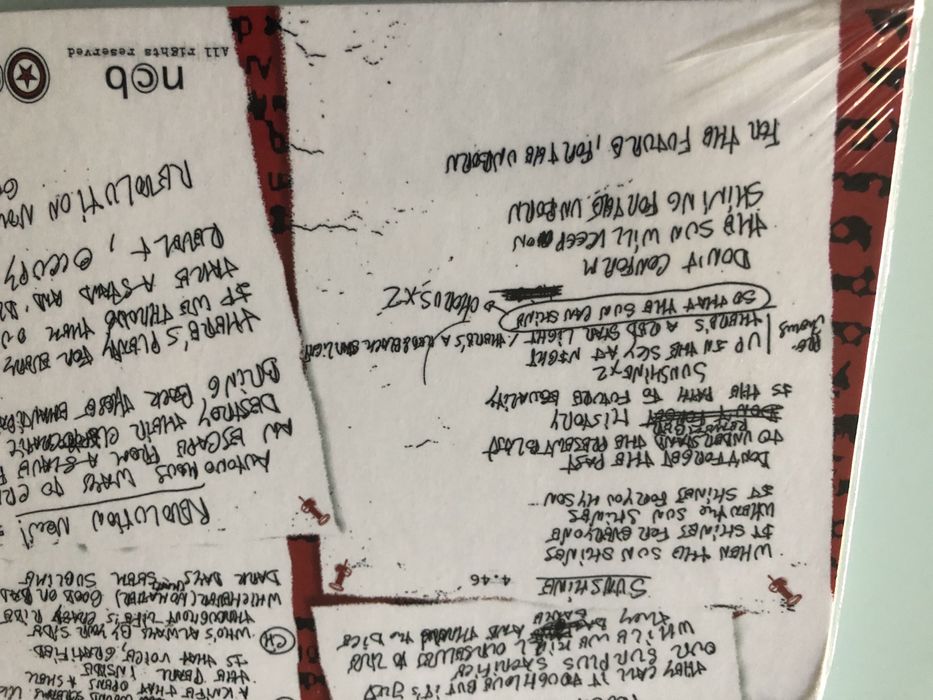 THEY CALL IT TOUGH LOVE BUT IT'S JUST
OUR SURPLUS SACRIFICE
WHILE WE KILL OURSELVES TO LIVE
THEY BANK AND THROW THE DICE
SUNSHINE 4.46
WHEN THE SUN SHINES
IT SHINES FOR EVERYONE
WHEN THE SUN SHINES
IT SHINES FOR YOU MY SON
DON'T FORGET THE PAST
TO UNDERSTAND THE PRESENT BLAST
REMEMBER
HISTORY
IS THE PATH TO FUTURE EQUALITY
SUNSHINE X2
UP IN THE SKY AT NIGHT
THERE'S A RED STAR LIGHT / THERE'S A RED & BLACK STARLIGHT
SO THAT THE SUN CAN SHINE
CHORUS X2
DON'T CONFORM
THE SUN WILL KEEP ON
SHINING FOR THE UNBORN
FOR THE FUTURE, FOR THE UNBORN
A KNIFE THAT OPENS A SHELL
THE PEARL INSIDE
IS THAT VOICE, GRATIFIED
CH
WHO'S ALWAYS BY YOUR SIDE
THROUGHOUT LIFE'S CRAZY RIDE
WHICHEVER (NO MATTER) GOOD OR BAD
DARK DAYS SEEM SUBLIME
REVOLUTION NOW!
AUTONOMOUS WAYS TO
AN ESCAPE FROM A SLAVE
DESTROY THEIR
BRING BACK THESE
THERE'S PLENTY FOR EVERY
IF WE THROW THEM OU
TAKE A STAND AND
REVOLT, OCCUPY
REVOLUTION NOW
ncb
All rights reserved